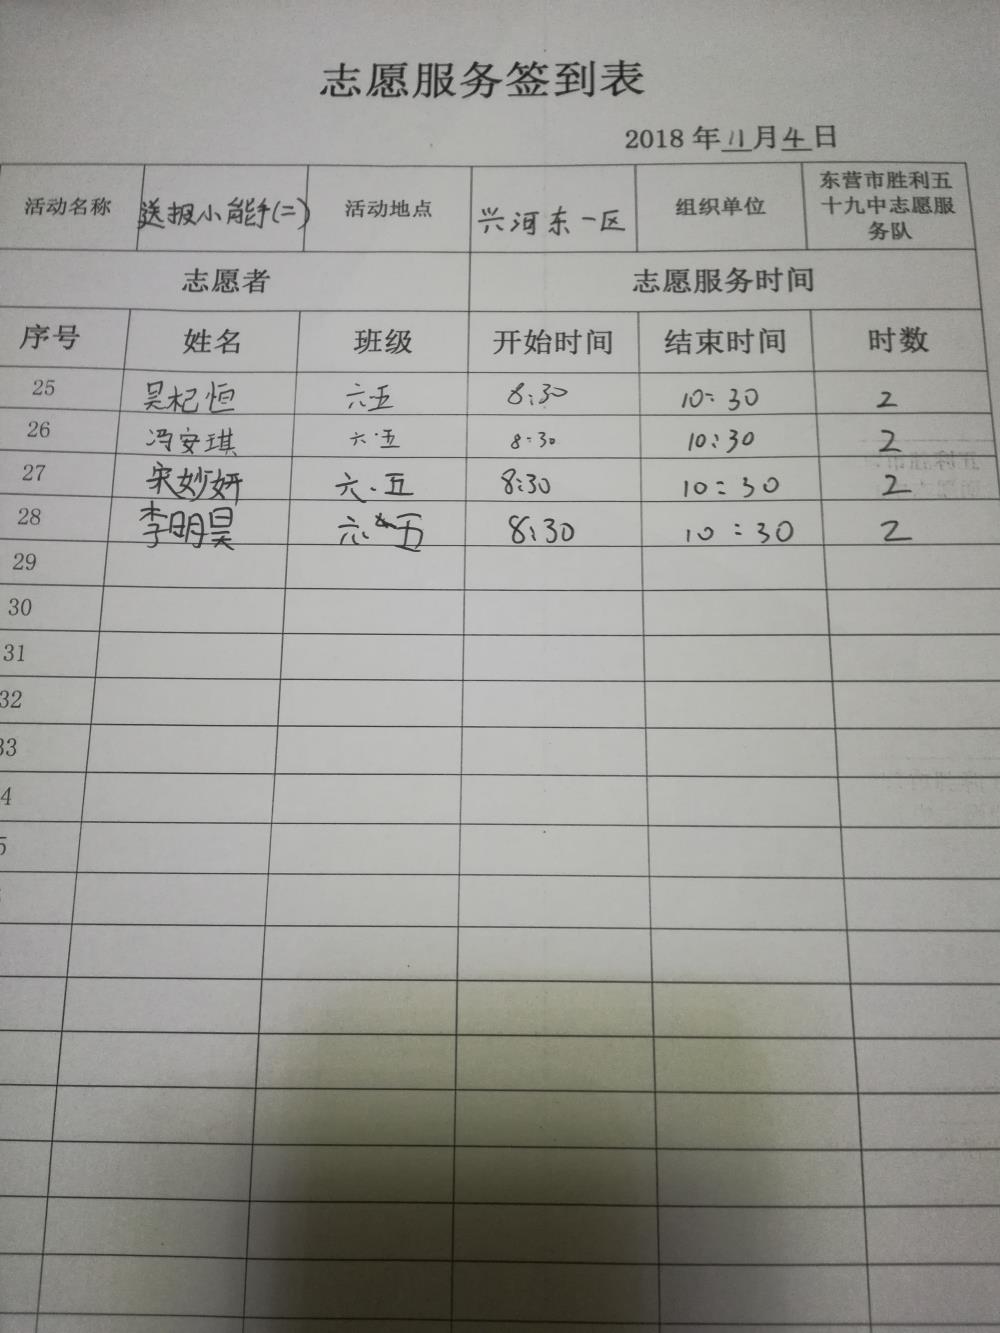 志愿服务签到表
2018 年 11 月 4 日
活动名称 送报小能手(二) 活动地点 兴河东一区 组织单位 东营市胜利五十九中志愿服务队
志愿者 志愿服务时间
序号 姓名 班级 开始时间 结束时间 时数
25 吴杞恒 六五 8:30 10:30 2
26 冯安琪 六·五 8:30 10:30 2
27 宋妙妍 六.五 8:30 10:30 2
28 李明昊 六 五 8:30 10:30 2
29
30
31
32
33
4
5